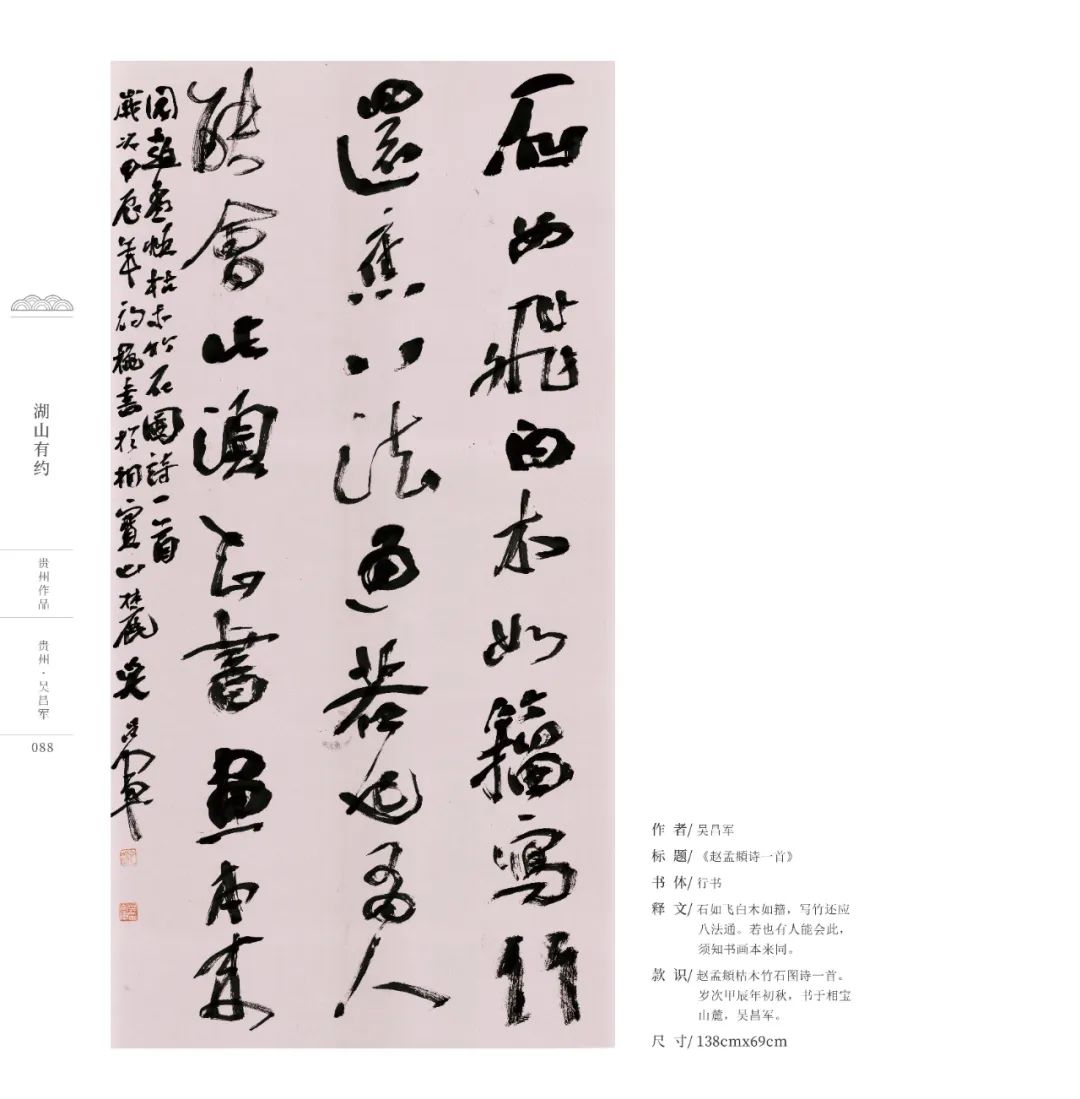 石如飛白木如籕寫竹
還應八法通若也有人
能會此須知書畫本來
同趙孟頫枯木竹石圖詩一首
歲次甲辰年初秋書於相寶山麓吳昌軍
湖山有约
贵州作品
贵州·吴昌军
088
作 者/ 吴昌军
标 题/ 《赵孟頫诗一首》
书 体/ 行书
释 文/ 石如飞白木如籕，写竹还应
八法通。若也有人能会此，
须知书画本来同。
款 识/ 赵孟頫枯木竹石图诗一首。
岁次甲辰年初秋，书于相宝
山麓，吴昌军。
尺 寸/ 138cmx69cm